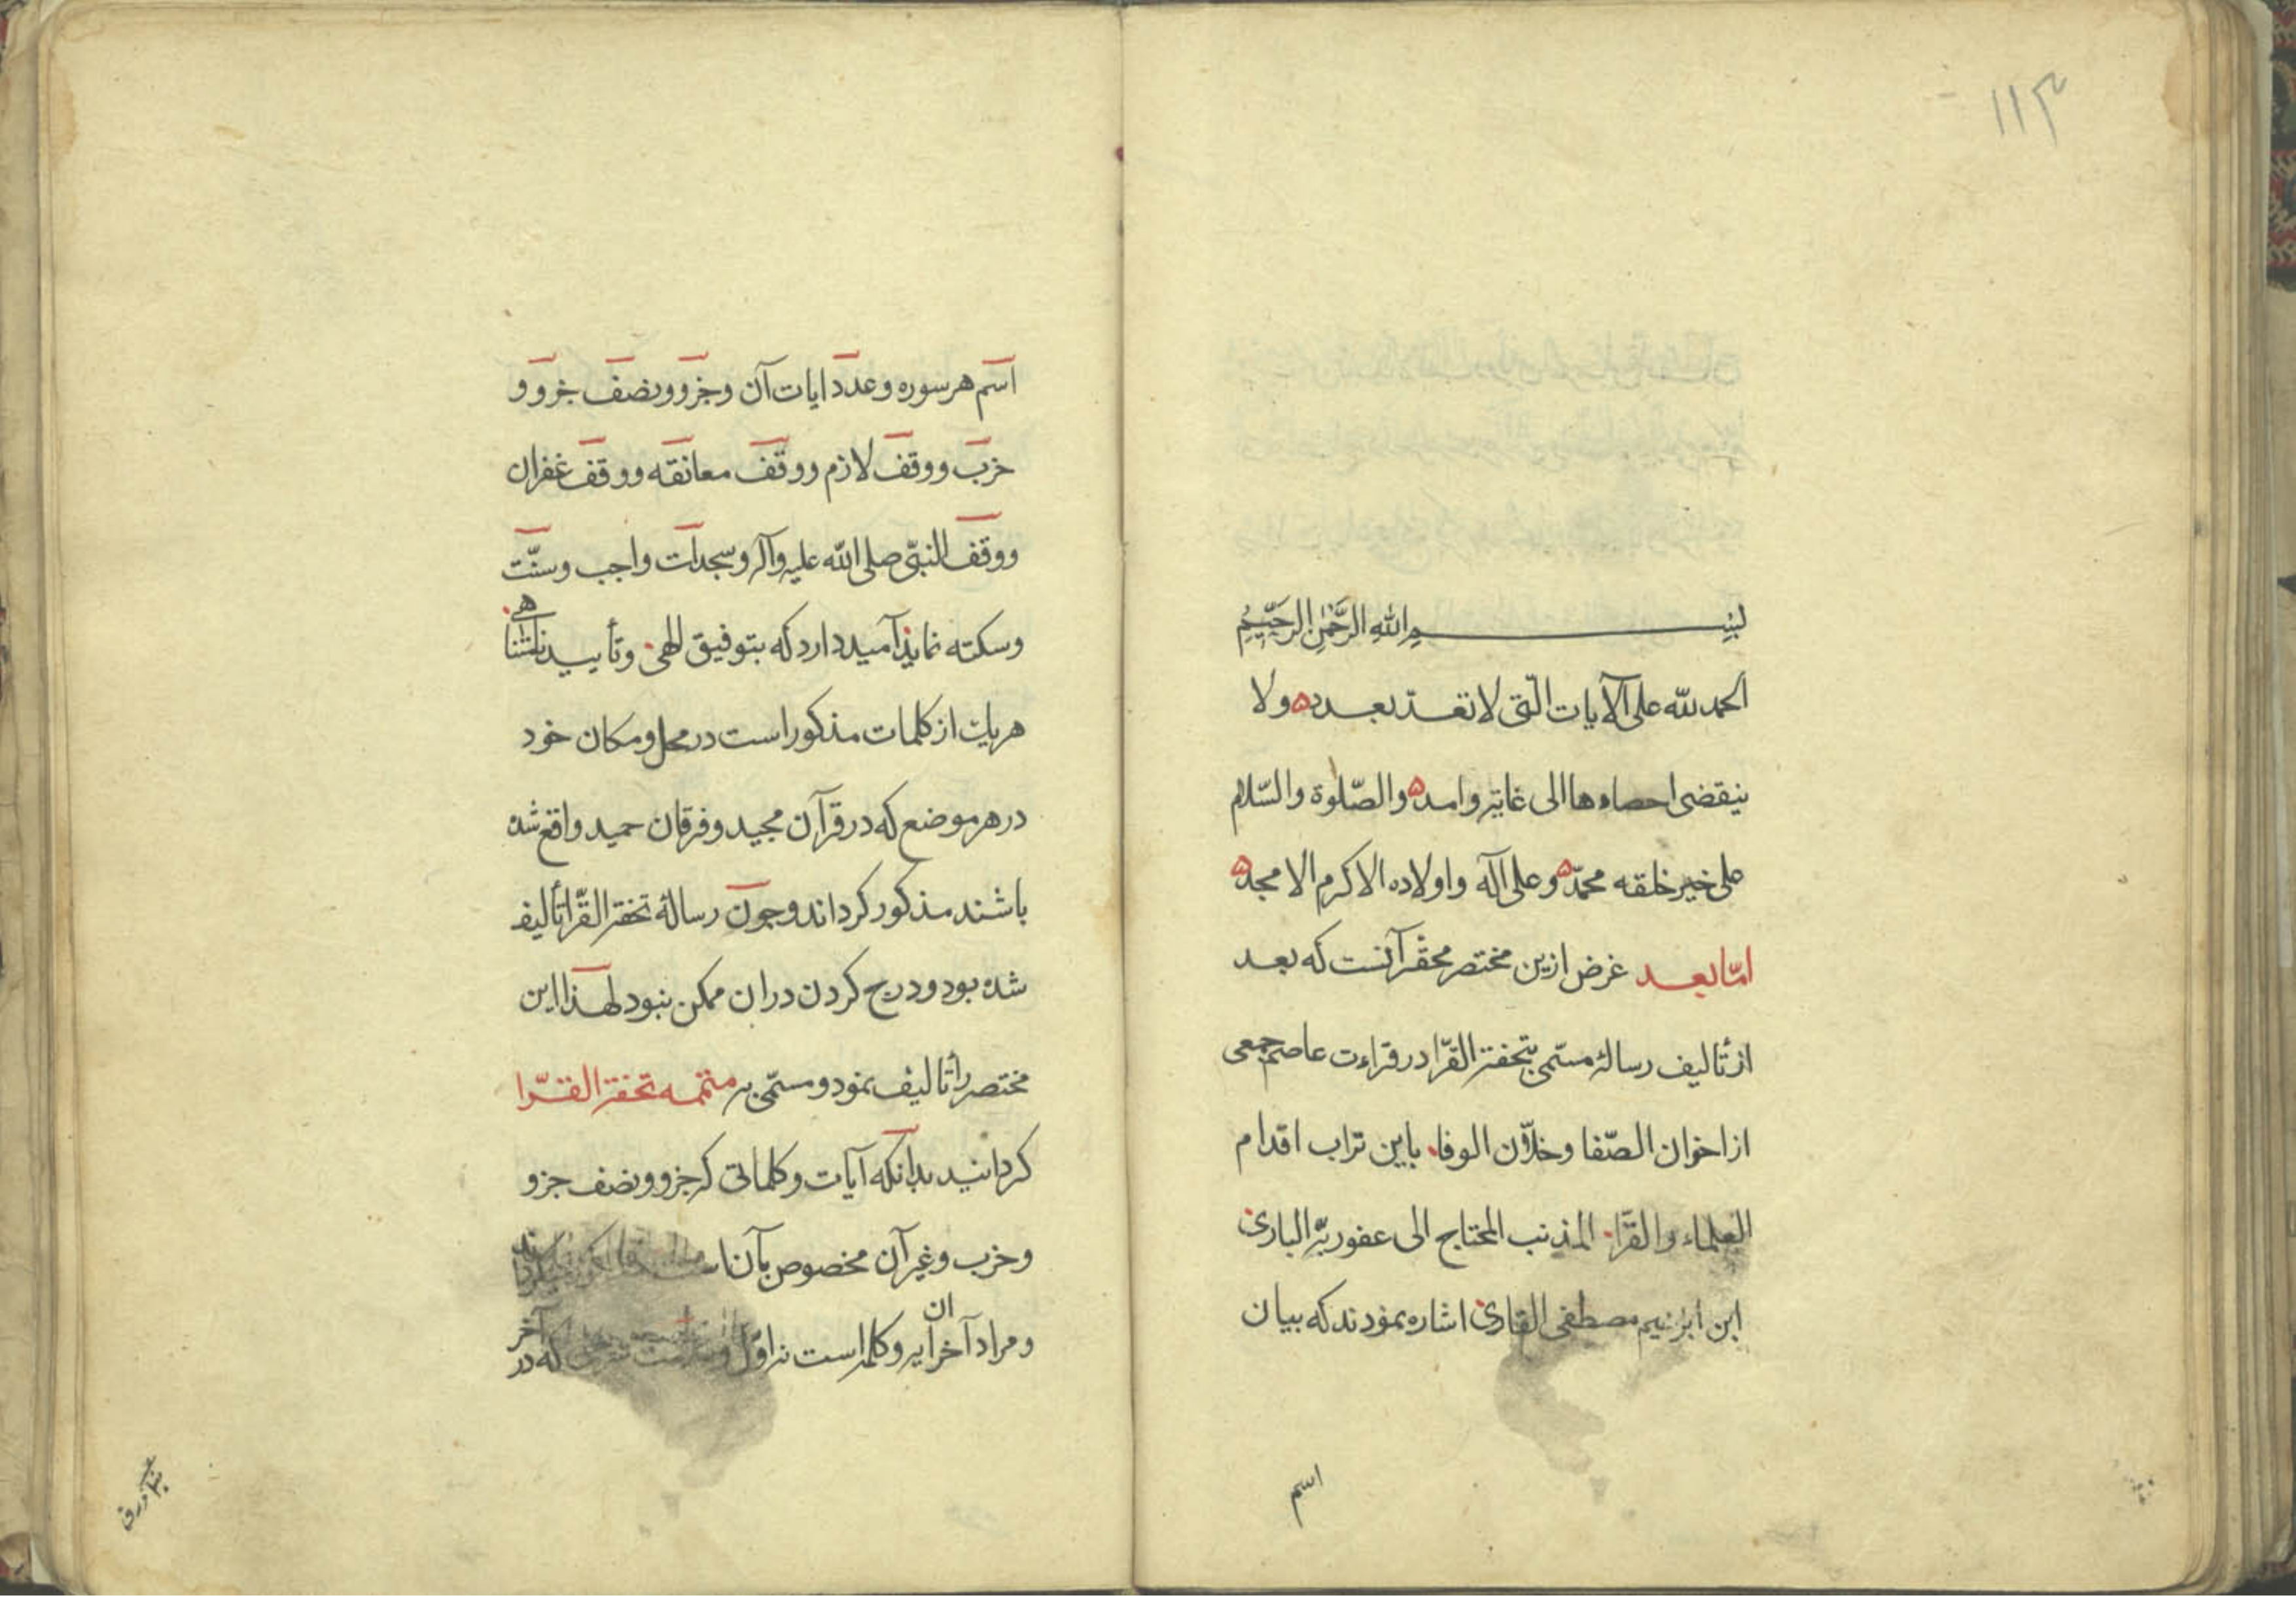 ۱۱۳
بسم الله الرَّحْمٰنِ الرَّحِيْمِ
الحمد لله على الآيات الّتى لا تعدّ بعدد ولا
ينقضى احصاءها الى غايته وامد والصّلوة والسّلام
على خير خلقه محمّد وعلى آله واولاده الاكرم الامجد
امّا بعد غرض ازين مختصر محقّر آنست كه بعد
از تأليف رسالۀ مسمّى بتحفة القرّا در قراءت عاصم جمعى
از اخوان الصّفا وخلاّن الوفا باين تراب اقدام
العلماء والقرّاء المذنب المحتاج الى عفو ربّه البارى
ابن ابرٰهيم مصطفى القارى اشاره نمودند كه بيان
اسم
اسم هر سوره وعدد ايات آن وجزو ونصف جزو و
حزب ووقف لازم ووقف معانقه ووقف غفران
ووقف النبىّ صلى الله عليه وآله وسجدات واجب وسنّت
وسكته نمايد اميد دارد كه بتوفيق الهى وتأييد نامتناهى
هريك از كلمات مذكور است در محل ومكان خود
در هر موضع كه در قرآن مجيد وفرقان حميد واقع شده
باشند مذكور كرداند وچون رسالۀ تحفة القرّا تأليف
شده بود ودرج كردن دران ممكن نبود لهذا اين
مختصر را تأليف نمود ومسمّى به متممه تحفة القرّا
كردانيد بدانكه آيات وكلماتى كه جزو ونصف جزو
وحزب وغير آن مخصوص بآن
ومراد آخر ان ايه وكلمه است نه اوّل كه در آخر